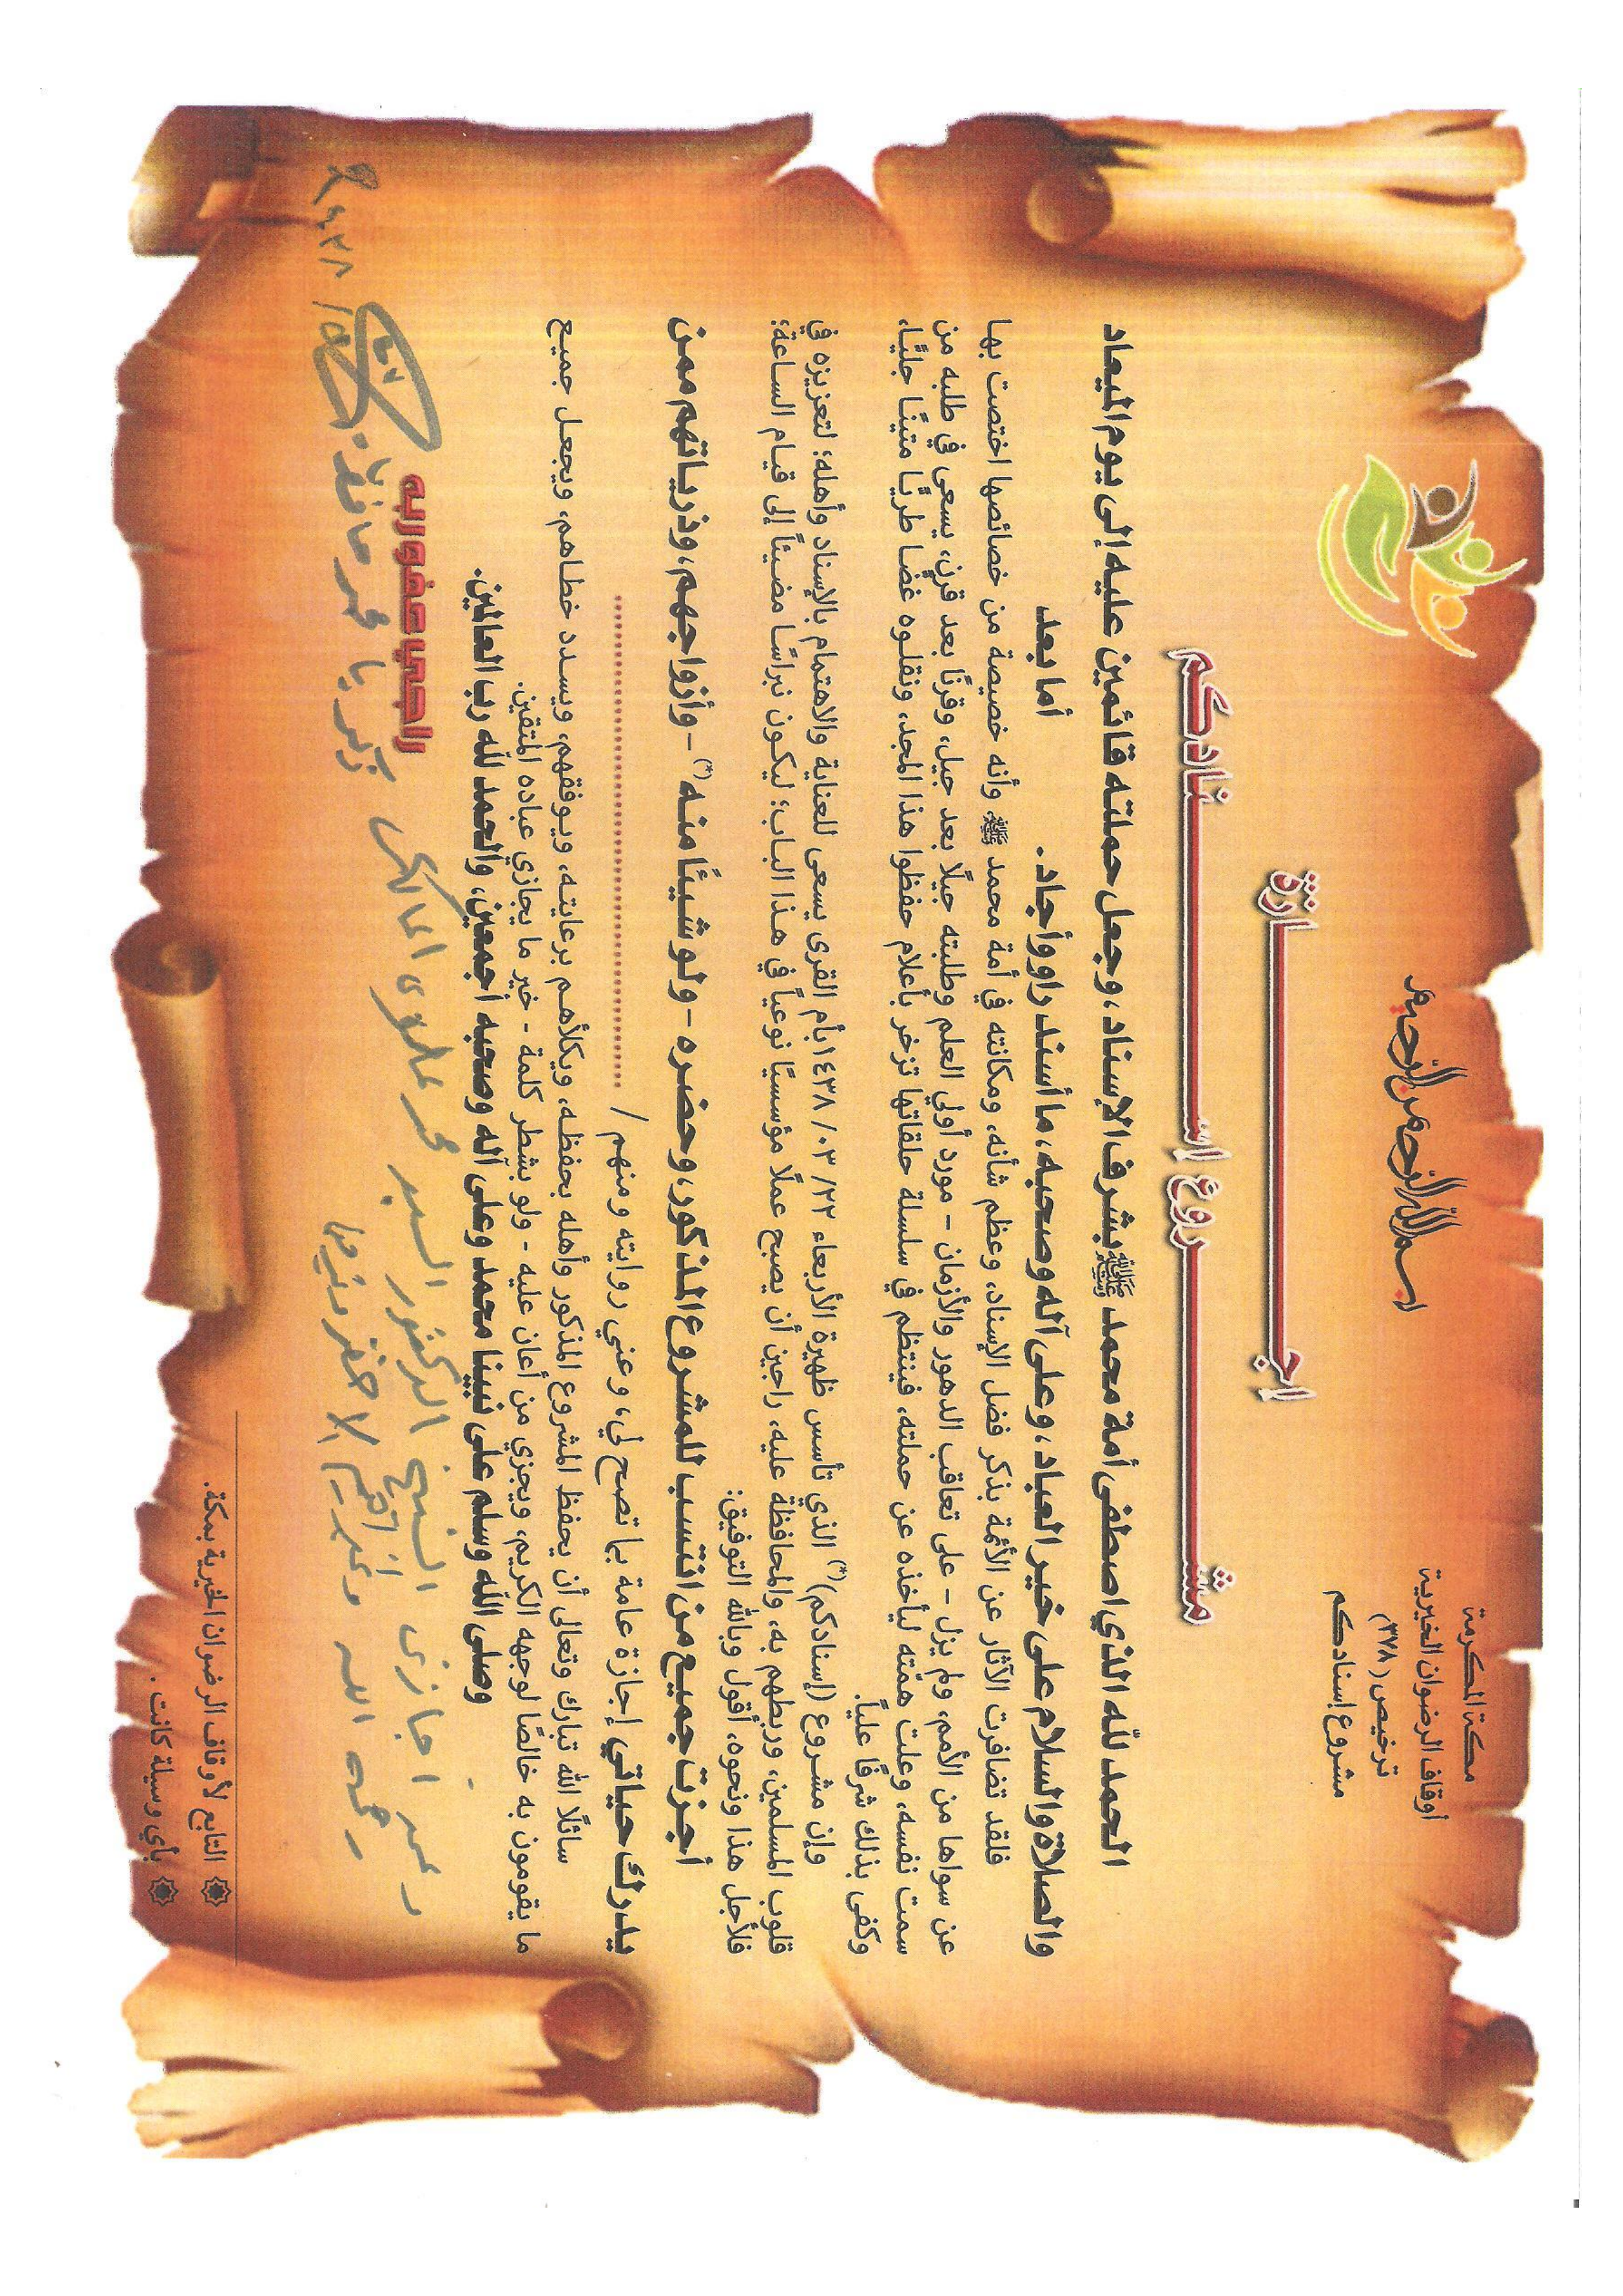 مكة المكرمة
أوقاف الرضوان الخيرية
ترخيص (٣٧٨)
مشروع إسنادكم
بسم الله الرحمن الرحيم
إجـــــازة
مشـــــروع إسـنـــــادكم
الحمد لله الذي اصطفى أمة محمد ﷺ بشرف الإسناد، وجعل حملته قائمين عليه إلى يوم الميعاد
والصلاة والسلام على خير العباد، وعلى آله وصحبه، ما أسند راو وأجاد. أما بعد
فلقد تضافرت الآثار عن الأئمة بذكر فضل الإسناد، وعظم شأنه، ومكانته في أمة محمد ﷺ وأنه خصيصة من خصائصها اختصت بها
عن سواها من الأمم، ولم يزل - على تعاقب الدهور والأزمان - مورد أولي العلم وطلبته جيلًا بعد جيل، وقرنًا بعد قرن، يسعى في طلبه من
سمت نفسه، وعلت همّته ليأخذه عن حملته، فينتظم في سلسلة حلقاتها تزخر بأعلام حفظوا هذا المجد، ونقلوه غضا طريًا متينًا جليًا،
وكفى بذلك شرفًا عليًا.
وإن مشروع (إسنادكم)(*) الذي تأسس ظهيرة الأربعاء ٢٢/ ٠٣/ ١٤٣٨ بأم القرى يسعى للعناية والاهتمام بالإسناد وأهله؛ لتعزيزه في
قلوب المسلمين، وربطهم به، والمحافظة عليه، راجين أن يصبح عملًا مؤسسيًا نوعياً في هذا الباب؛ ليكون نبراسًا مضيئاً إلى قيام الساعة؛
فلأجل هذا ونحوه، أقول وبالله التوفيق:
أجزت جميع من انتسب للمشروع المذكور، وحضره - ولو شيئًا منه(*) - وأزواجهم، وذرياتهم ممن
يدرك حياتي إجازة عامة بما تصح لي، وعني روايته ومنهم / ........................
سائلًا الله تبارك وتعالى أن يحفظ المشروع المذكور وأهله بحفظه، ويكلأهم برعايته، ويوفقهم، ويسدد خطاهم، ويجعل جميع
ما يقومون به خالصًا لوجهه الكريم، ويجزي من أعان عليه - ولو بشطر كلمة - خير ما يجازي عباده المتقين.
وصلى الله وسلم على نبينا محمد وعلى آله وصحبه أجمعين، والحمد لله رب العالمين.
راجي عفو ربه
وعمد اجازنى الشيخ الدكتور السيد محمد علوى المالكى
رحمه الله
زكريا محمد حافظ
١٤٣٨
التابع لأوقاف الرضوان الخيرية بمكة.
بأي وسيلة كانت.